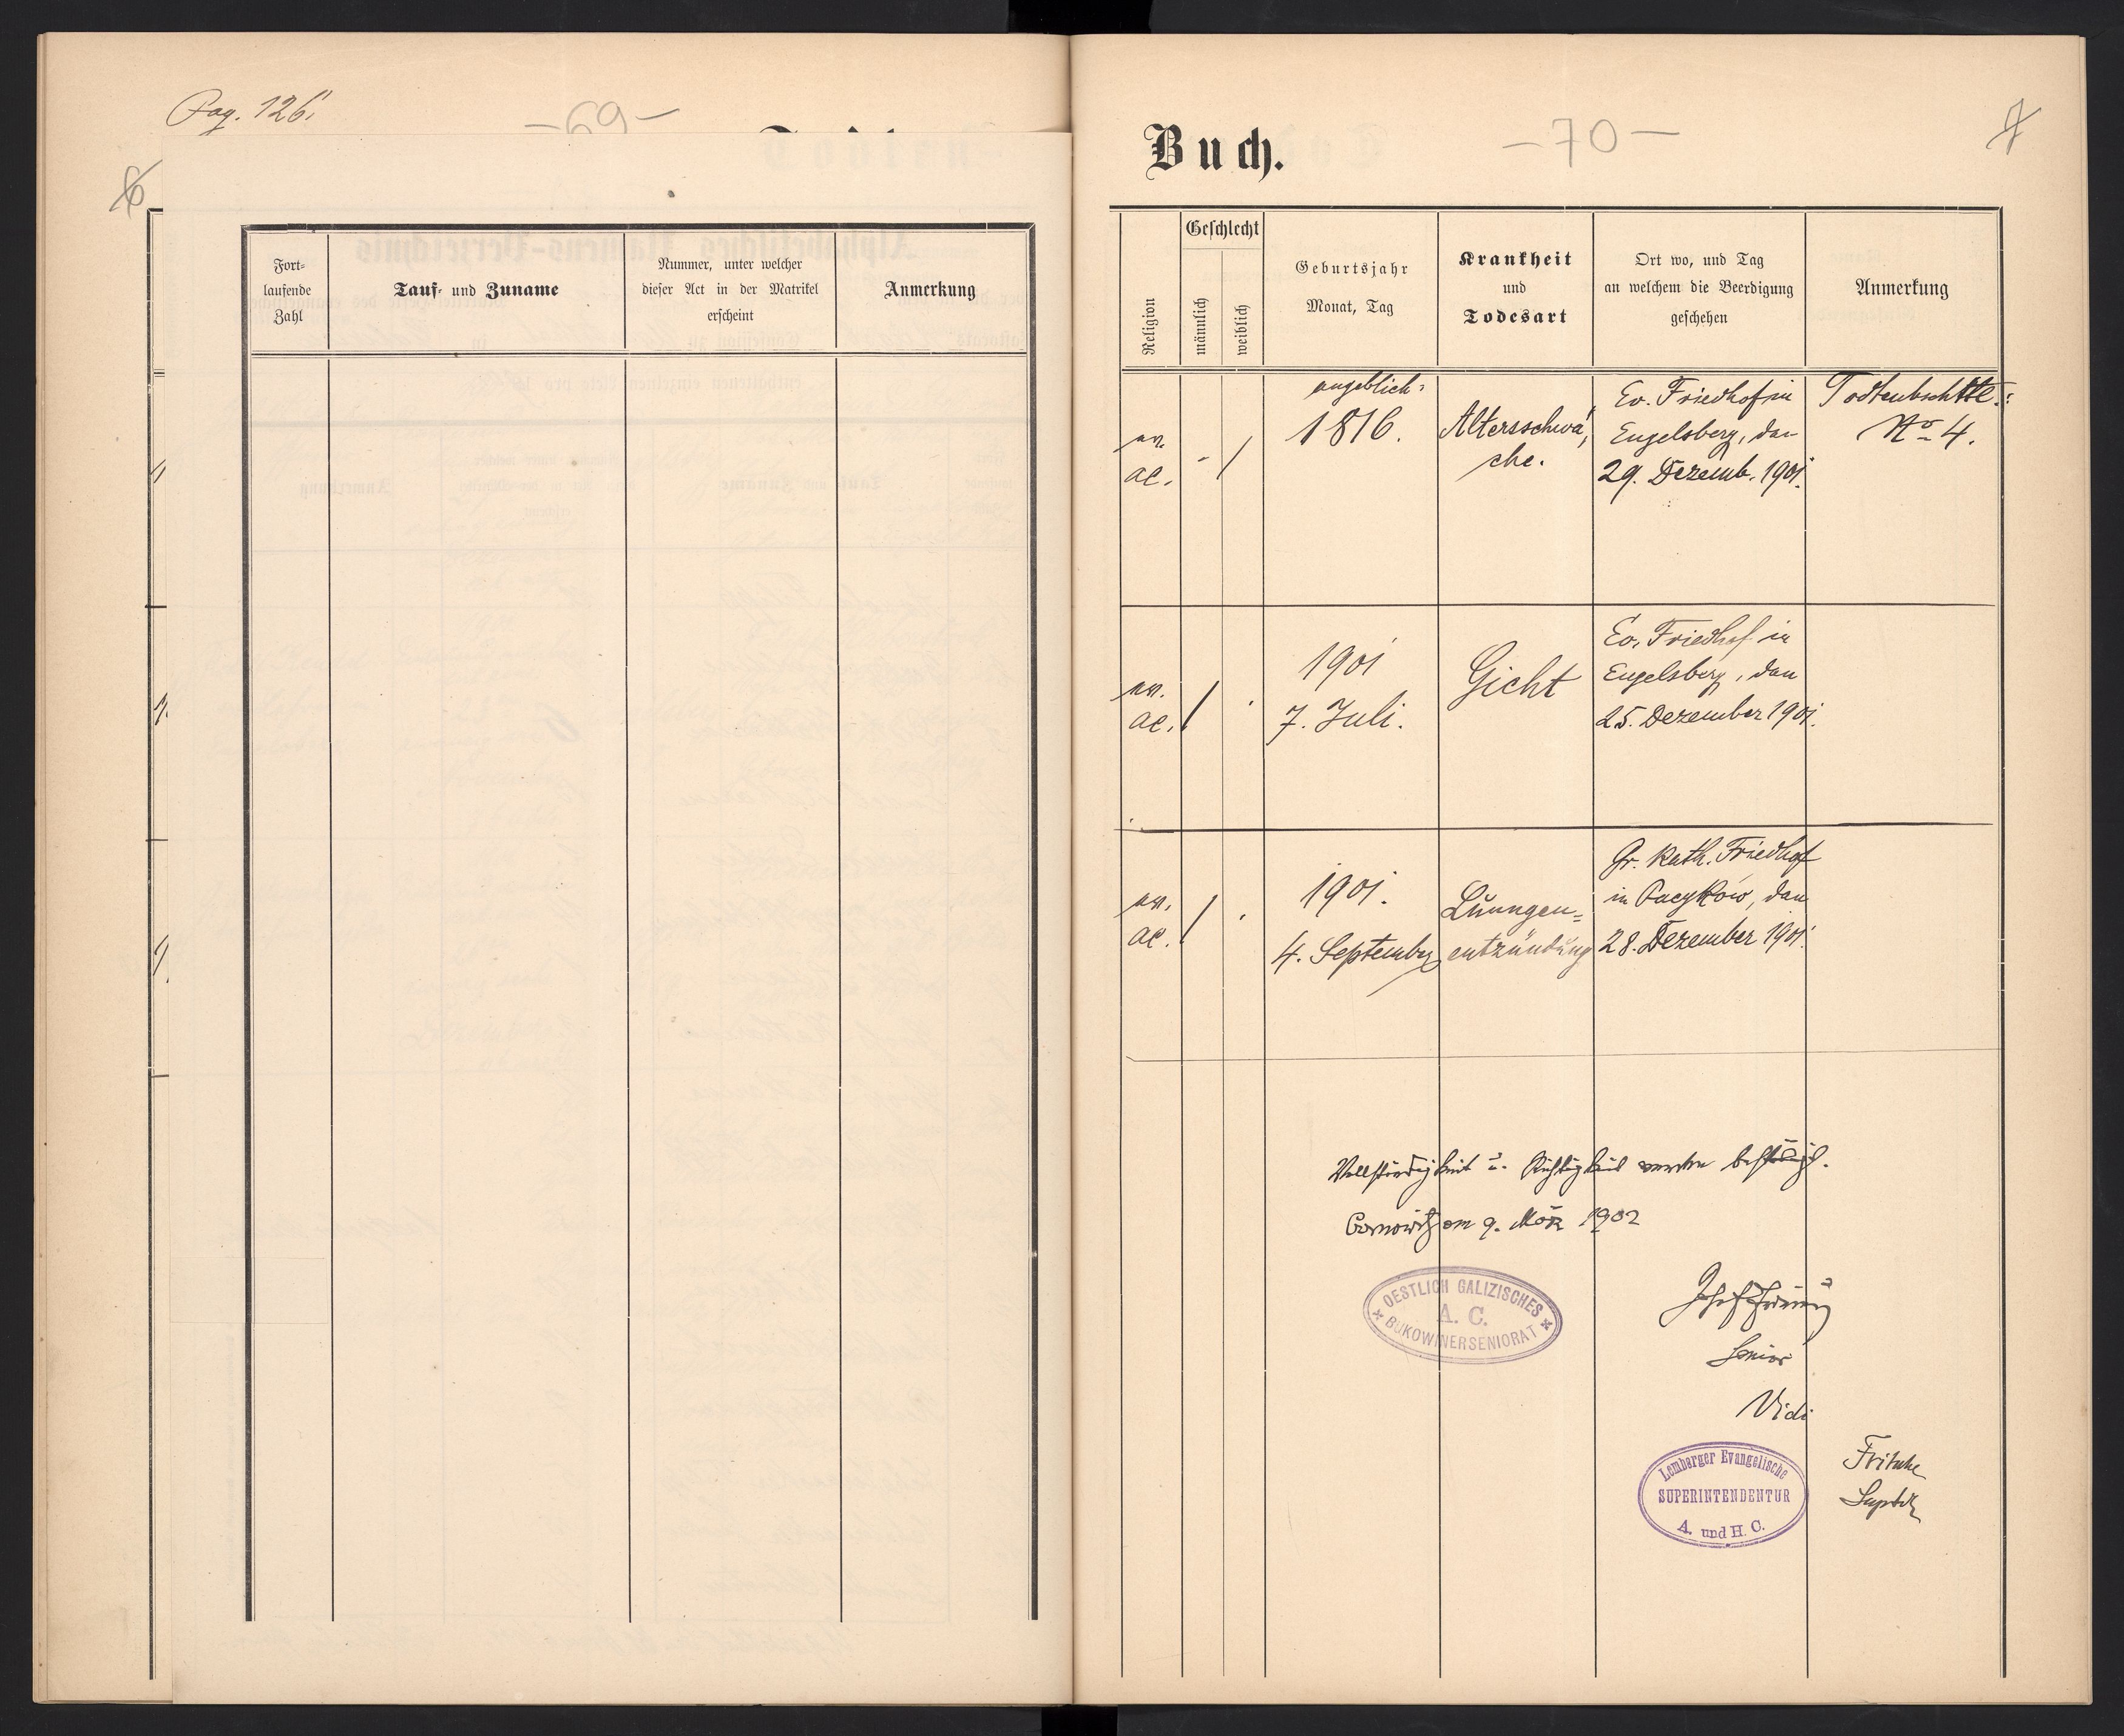 Pag. 126.
-69-
6
Fort-
laufende
Zahl
Tauf- und Zuname
Nummer, unter welcher
dieser Act in der Matrikel
erscheint
Anmerkung
Buch.
-70-
7
Religion
Geschlecht
männlich
weiblich
Geburtsjahr
Monat, Tag
Krankheit
und
Todesart
Ort wo, und Tag
an welchem die Beerdigung
geschehen
Anmerkung
ev.
ac.
- /
angeblich:
1816.
Altersschwä,
che.
Ev. Friedhof in
Engelsberg, den
29. Dezemb. 1901.
Todtenbschttl.:
No 4.
ev.
ac.
/ .
1901
7. Juli.
Gicht
Ev. Friedhof in
Engelsberg, den
25. Dezember 1901.
ev.
ac.
/ .
1901.
4. September
Lungen=
entzündung
Gr. kath. Friedhof
in Pacyków, den
28. Dezember 1901.
Vollständigkeit u. Richtigkeit werden bestätigt.
am 9. März 1902
OESTLICH GALIZISCHES
A. C.
BUKOWINERSENIORAT
Senior
Vidi
Lemberger Evangelische
SUPERINTENDENTUR
A. und H. C.
Fritsche